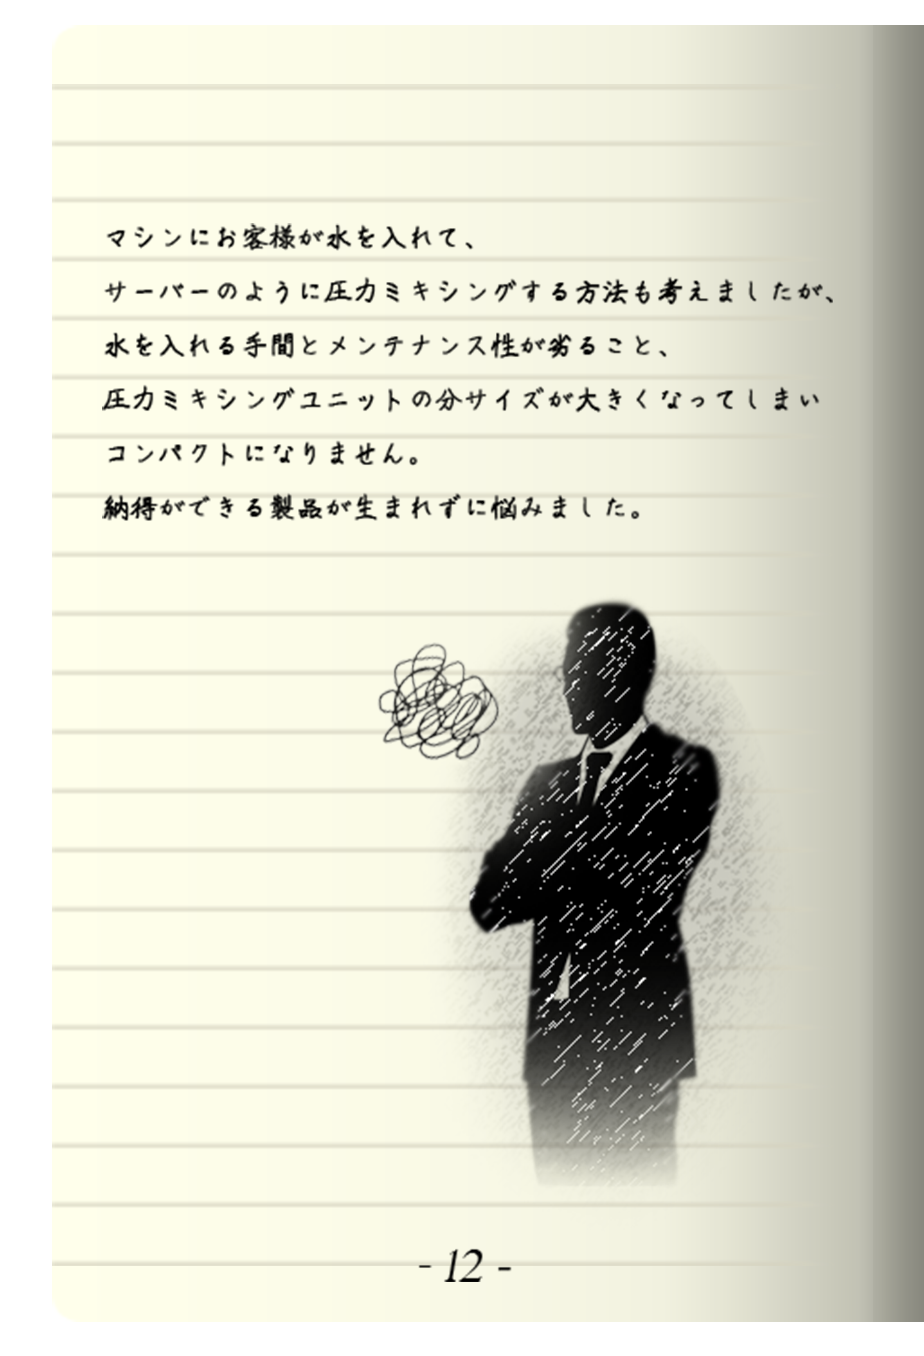 マシンにお客様が水を入れて、
サーバーのように圧力ミキシングする方法も考えましたが、
水を入れる手間とメンテナンス性が劣ること、
圧力ミキシングユニットの分サイズが大きくなってしまい
コンパクトになりません。
納得ができる製品が生まれずに悩みました。
- 12 -